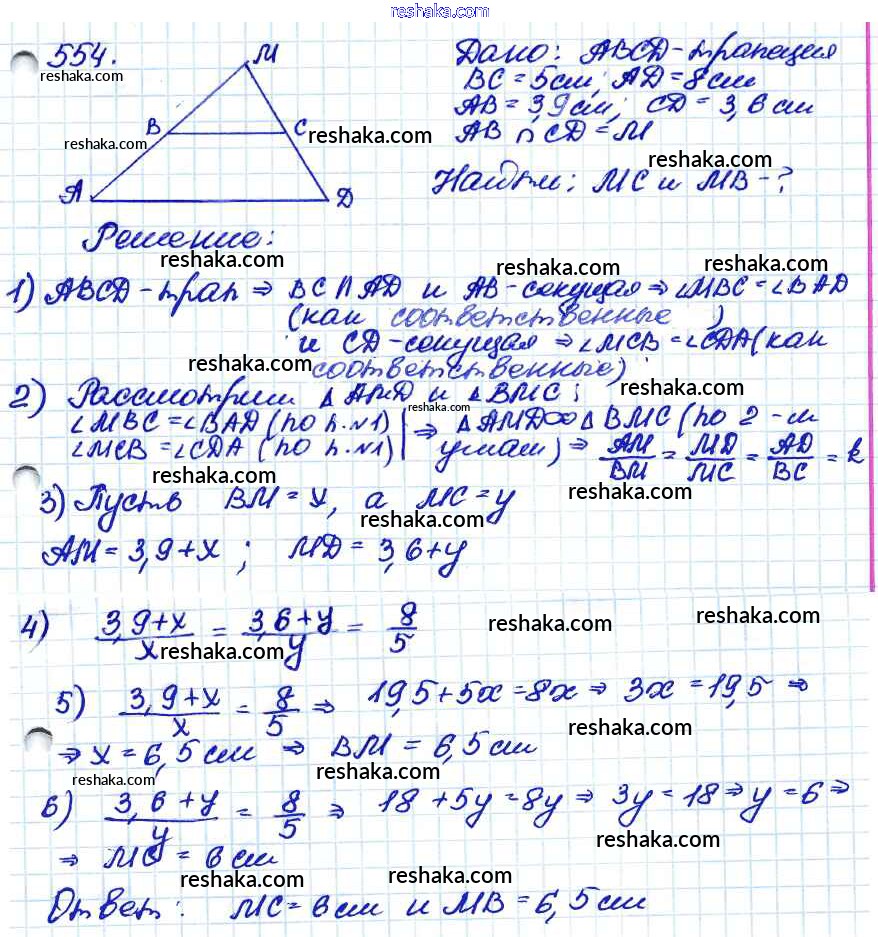 reshaka.com
554.
reshaka.com
M
B
C
A
D
reshaka.com
reshaka.com
Дано: ABCD-трапеция
BC = 5см; AD = 8см
AB = 3,9см; CD = 3,6 см
AB ∩ CD = M
reshaka.com
Найти: MC и MB - ?
Решение:
reshaka.com
reshaka.com
reshaka.com
1) ABCD-трап ⇒ BC ∩ AD и AB-секущая ⇒ ∠MBC = ∠BAD
(как соответственные)
reshaka.com
reshaka.com
и CD-секущая ⇒ ∠MCB = ∠CDA (как
reshaka.com
соответственные)
reshaka.com
2) Рассмотрим △AMD и △BMC;
reshaka.com
∠MBC = ∠BAD (по п.№1) | ⇒ △AMD ∞ △BMC (по 2-м
∠MCB = ∠CDA (по п.№1) | углам) ⇒ AM/BM = MD/MC = AD/BC = k
reshaka.com
reshaka.com
3) Пусть BM = x, а MC = y
reshaka.com
AM = 3,9+x ; MD = 3,6+y
4) 3,9+x/x = 3,6+y/y = 8/5
reshaka.com
reshaka.com
reshaka.com
5) 3,9+x/x = 8/5 ⇒ 19,5+5x=8x ⇒ 3x = 19,5 ⇒
reshaka.com
reshaka.com
⇒ x = 6,5 см ⇒ BM = 6,5 см
reshaka.com
reshaka.com
6) 3,6+y/y = 8/5 ⇒ 18 + 5y = 8y ⇒ 3y = 18 ⇒ y = 6 ⇒
reshaka.com
⇒ MC = 6 см
reshaka.com
reshaka.com
Ответ: MC = 6 см и MB = 6,5 см
reshaka.com